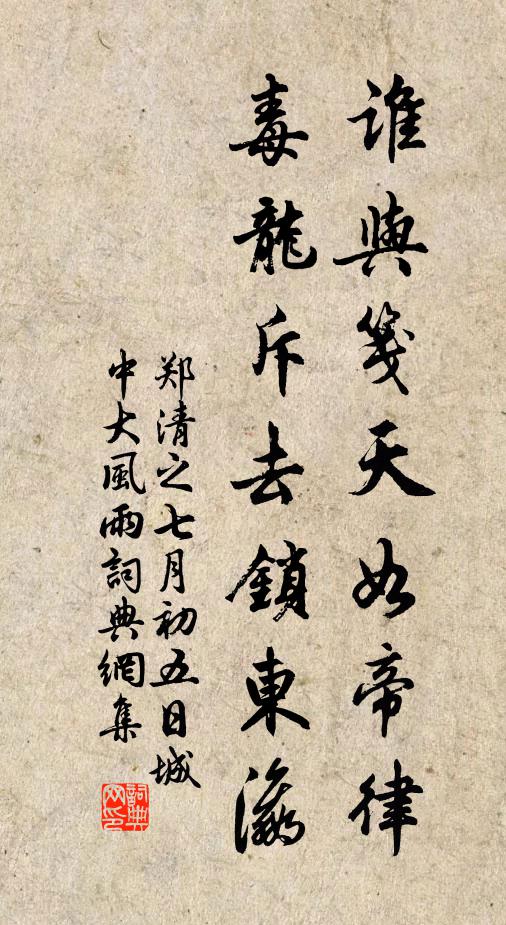 誰與箋天如帝律
毒龍斥去鎖東瀛
郑清之七月初五日城
中大風雨詞典網集
詞典网印